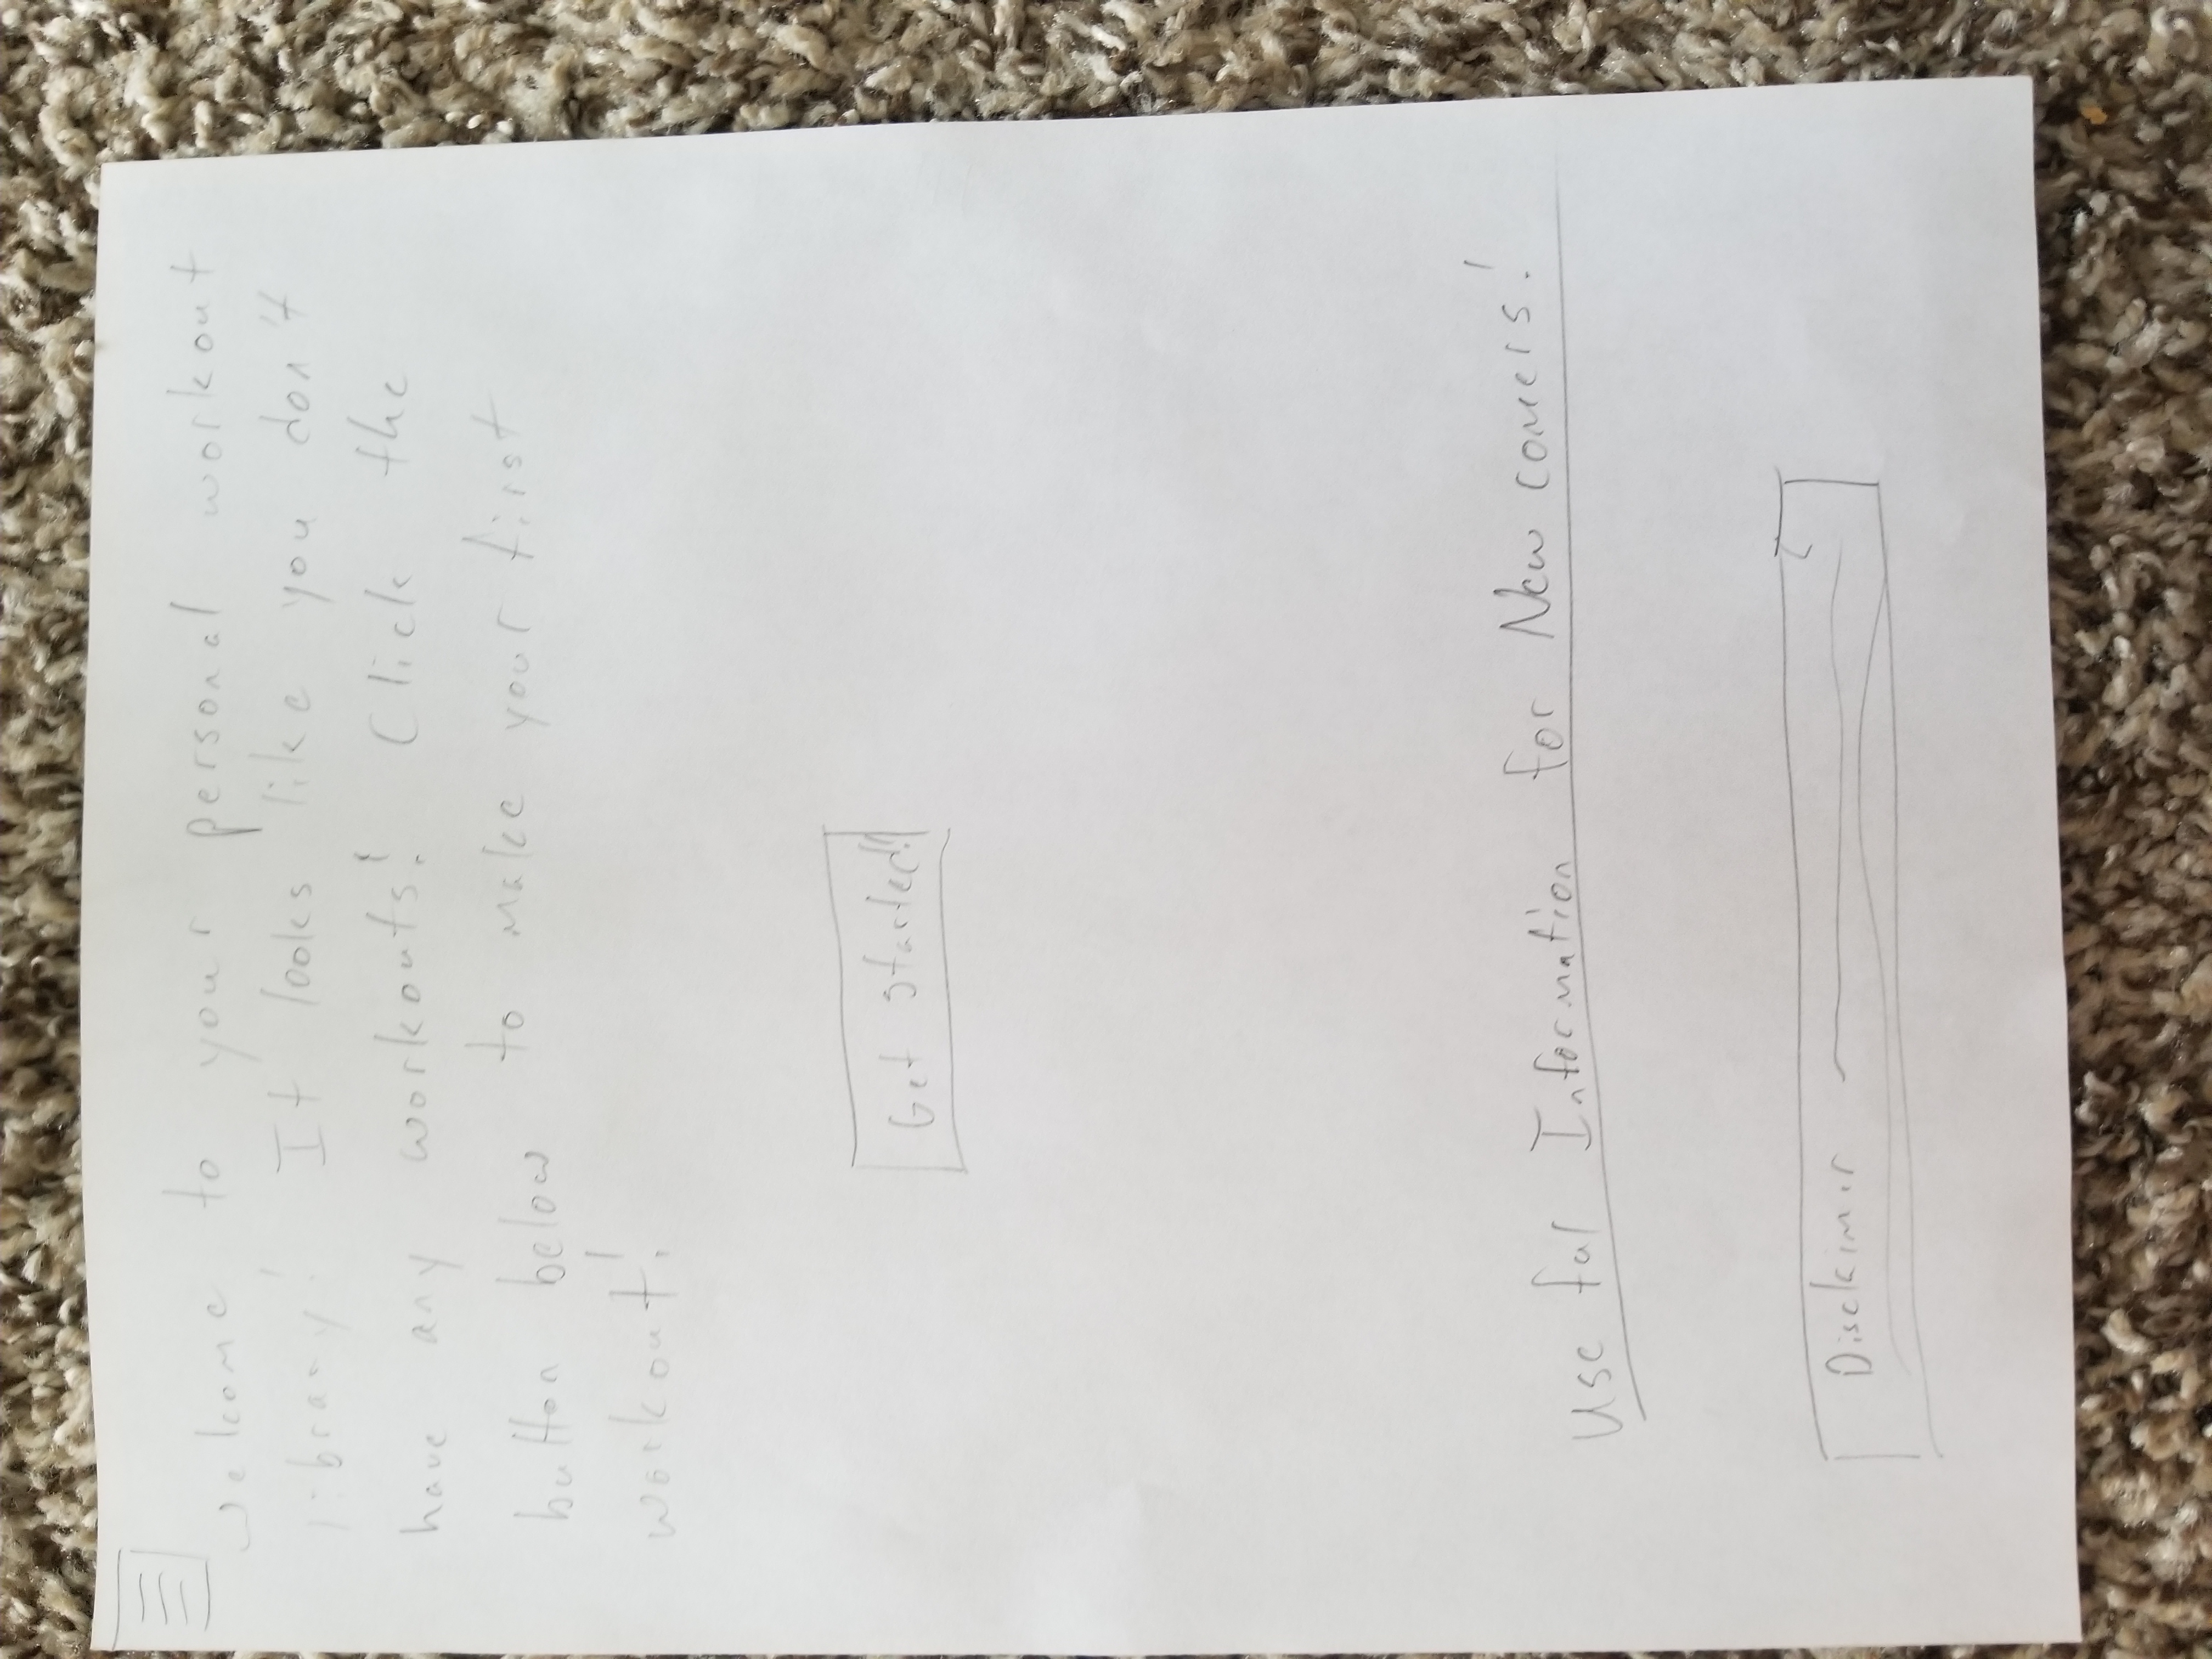 Welcome to your personal workout
library! It looks like you don't
have any workouts! Click the
button below to make your first
workout!
Get started!
Useful Information for Newcomers!
Disclaimer